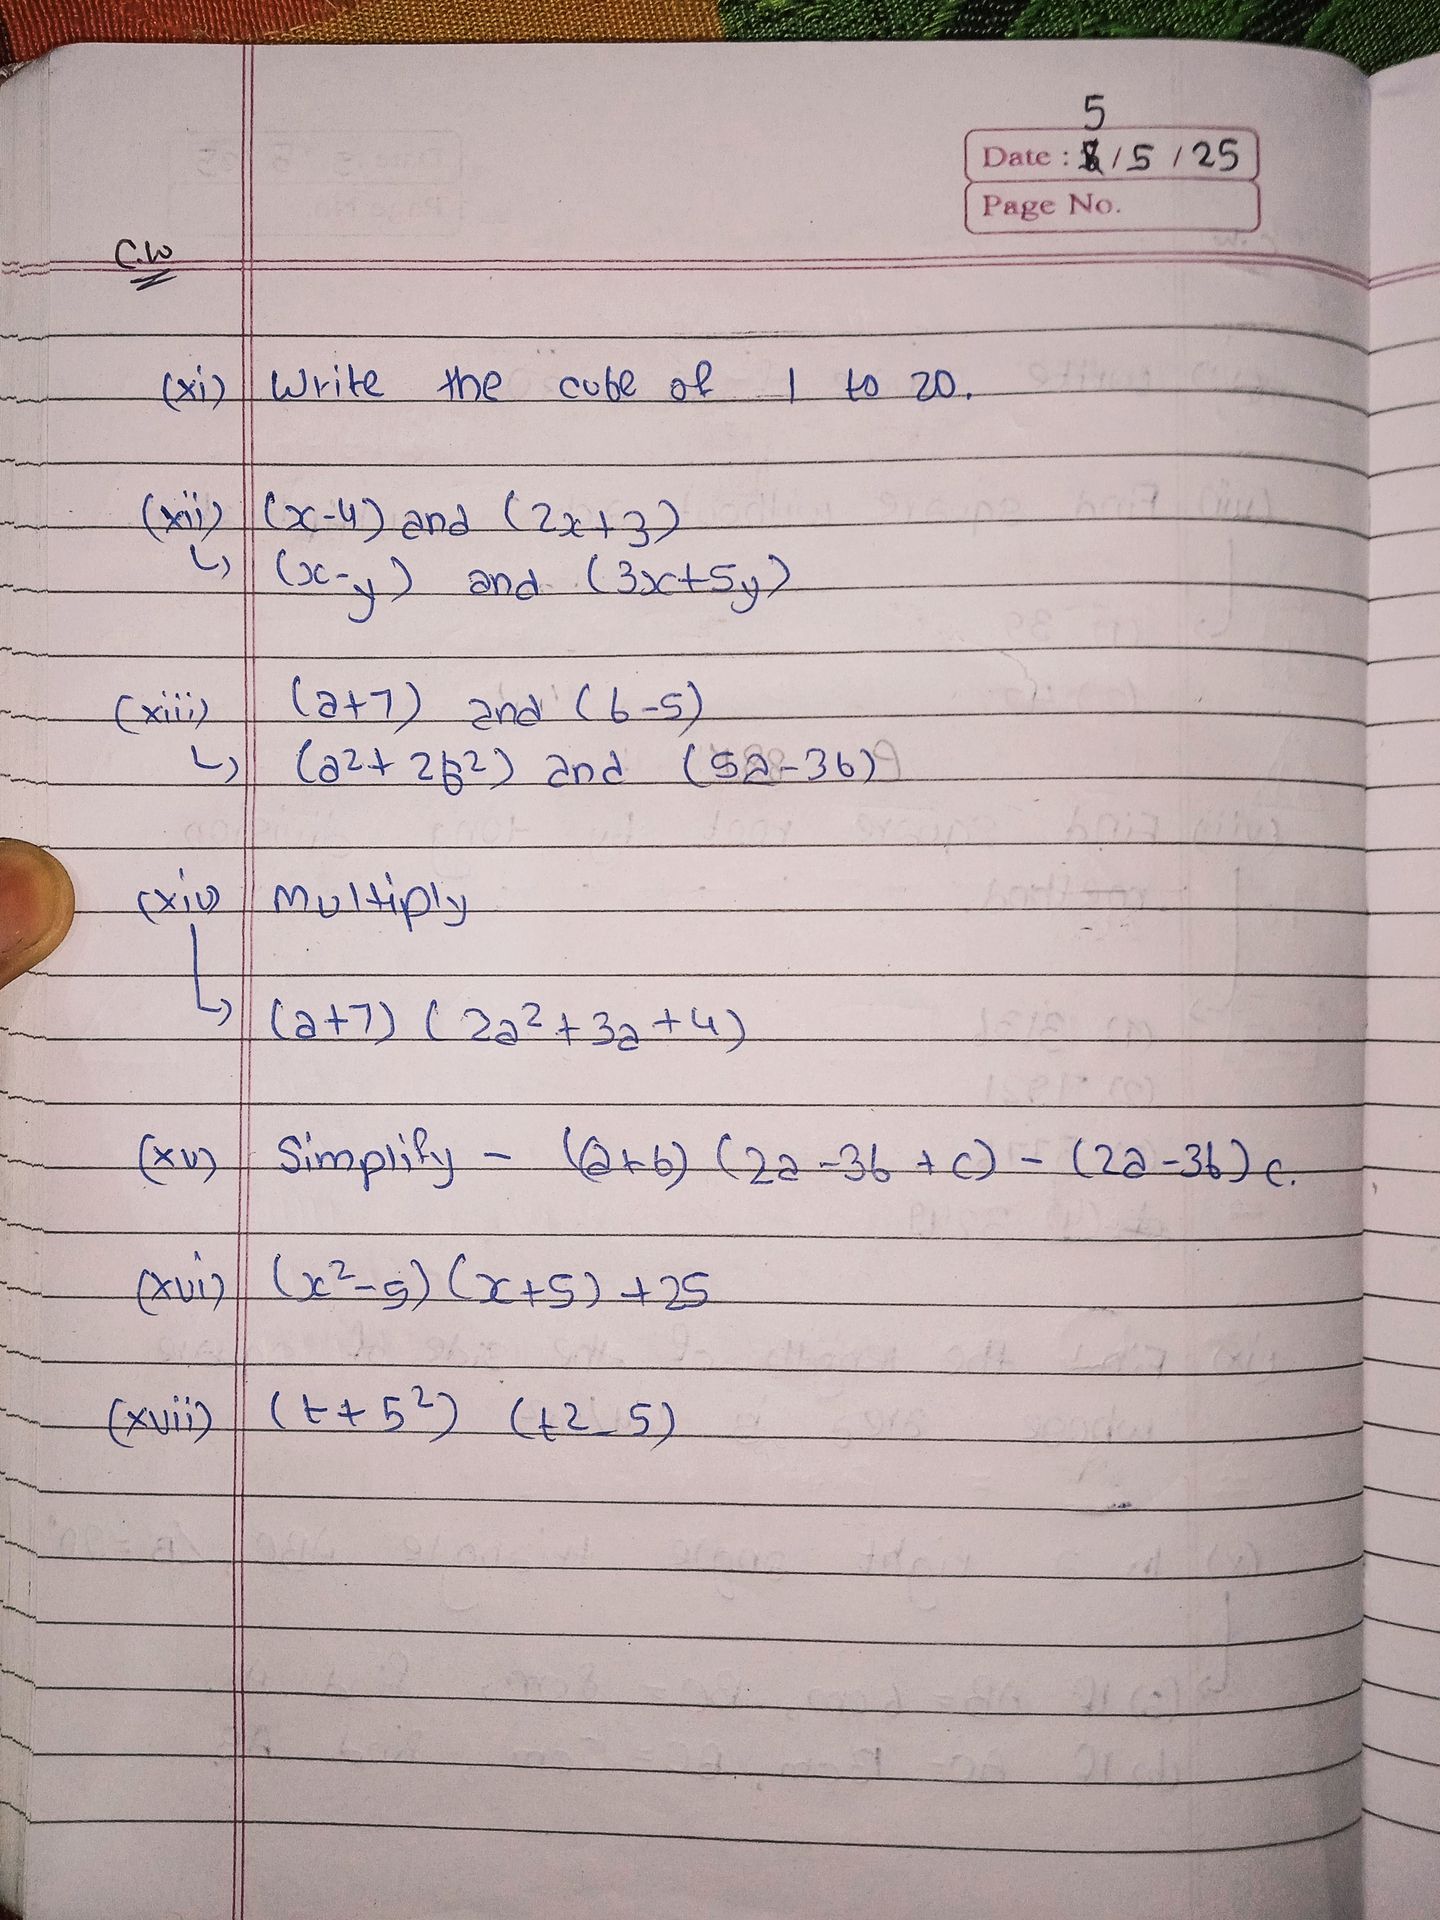 5
Date : 8/5/25
Page No.
C.W
(xi) Write the cube of 1 to 20.
(xii) (x-4) and (2x+3)
↳ (x-y) and (3x+5y)
(xiii) (a+7) and (b-5)
↳ (a²+2b²) and (5a-3b)
(xiv) Multiply
↳ (a+7) (2a²+3a+4)
(xv) Simplify - (a+b) (2a-3b+c) - (2a-3b) c.
(xvi) (x²-5) (x+5) +25
(xvii) (t+5²) (t2-5)